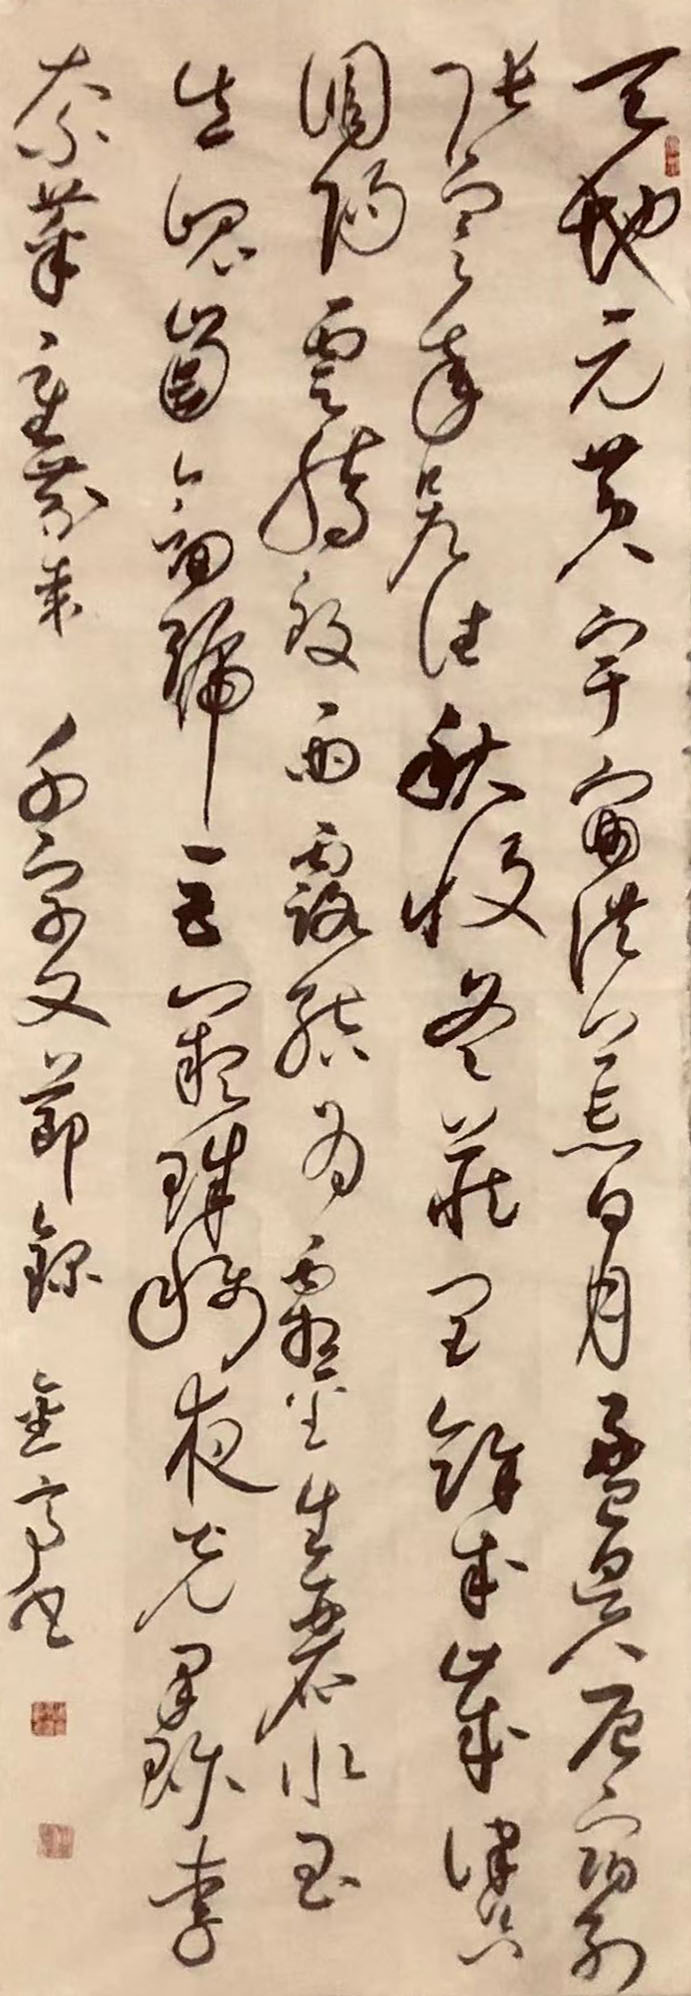 天地元黃宇宙洪荒日月盈昃辰宿列
張寒來暑往秋收冬藏閏餘成歲律呂
調陽雲騰致雨露結為霜金生麗水玉
出崑崗劍號巨闕珠稱夜光果珍李
柰菜重芥薑 千字文節錄